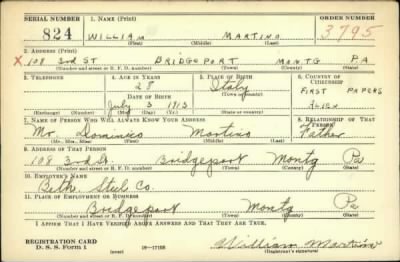 SERIAL NUMBER 1. Name (Print) ORDER NUMBER
824 WILLIAM MARTINO 3795
(First) (Middle) (Last)
2. Address (Print)
X 108 3rd ST BRIDGEPORT MONTG PA
(Number and street or R. F. D. number) (Town) (County) (State)
3. Telephone 4. Age in Years 5. Place of Birth 6. Country of Citizenship
28 Italy FIRST PAPERS
Date of Birth (Town or county)
July 3 1913 ALIEN
(Exchange) (Number) (Mo.) (Day) (Yr.) (State or country)
7. Name of Person Who Will Always Know Your Address 8. Relationship of That Person
Mr. Dominico Martino Father
(Mr., Mrs., Miss) (First) (Middle) (Last)
9. Address of That Person
108 3rd St. Bridgeport Montg Pa
(Number and street or R. F. D. number) (Town) (County) (State)
10. Employer's Name
Beth. Steel Co.
11. Place of Employment or Business
Bridgeport Montg Pa
(Number and street or R. F. D. number) (Town) (County) (State)
I Affirm That I Have Verified Above Answers and That They Are True.
REGISTRATION CARD
D. S. S. Form 1 (over) 16—17105 William Martino
(Registrant's signature)